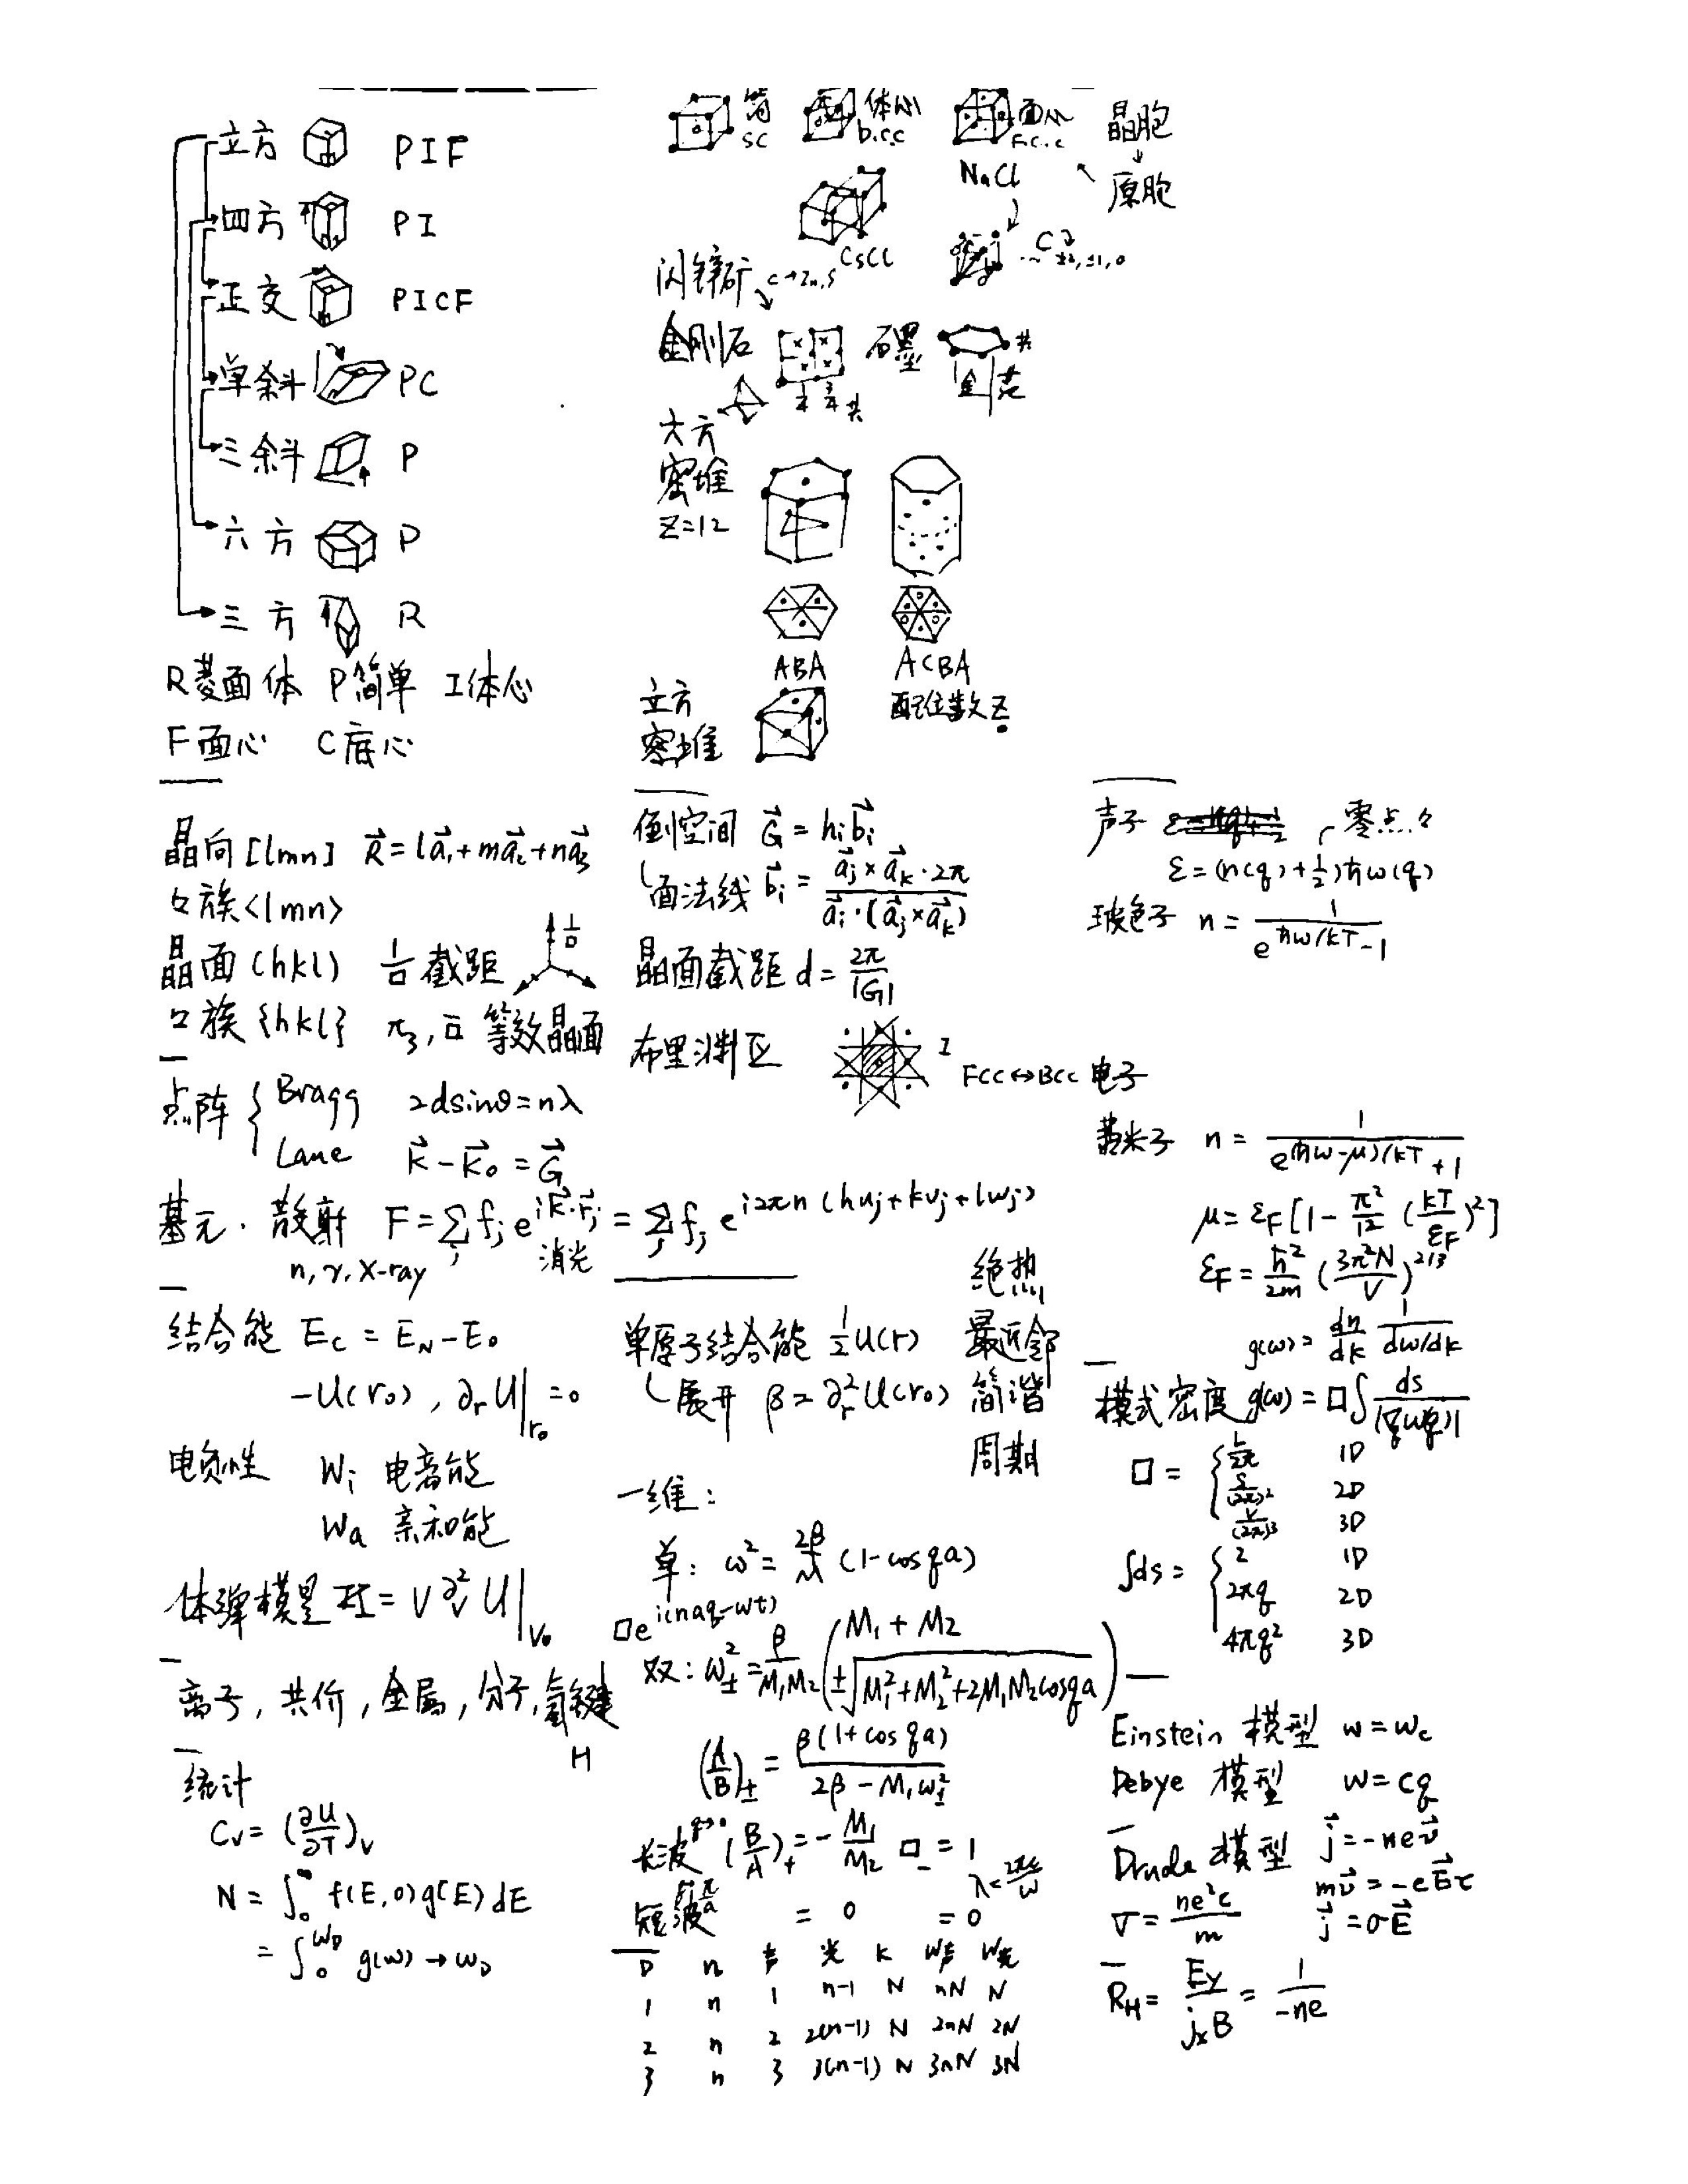 立方 PIF
四方 PI
正交 PICF
单斜 PC
三斜 P
六方 P
三方 R
R菱面体 P简单 I体心
F面心 C底心
简 SC
体心 b.c.c
面心 F.c.c
晶胞
原胞
NaCl
CsCl
C
±2, ±1, 0
闪锌矿 C→Zn,S
金刚石
1/4 3/4 共
石墨 共
六方
密堆
Z=12
ABA ACBA
立方
密堆
配位数Z
晶向[lmn] R⃗=la⃗₁+ma⃗₂+na⃗₃
族<lmn>
晶面(hkl) 1/□ 截距 1/□
族{hkl} 等效晶面
点阵 { Bragg 2dsinθ=nλ
Laue k⃗-k⃗₀=G⃗
基元·散射 F=∑ⱼ fⱼ e^{ik⃗·r⃗ⱼ} = ∑ⱼ fⱼ e^{i2πn(huⱼ+kvⱼ+lwⱼ)}
n, γ, X-ray 消光
结合能 E_c = E_N-E₀
-U(r₀), ∂ᵣU|_{r₀}=0
电负性 Wᵢ 电离能
Wa 亲和能
体弹模量 = V∂²_V U|_{V₀}
离子, 共价, 金属, 分子, 氢键
H
统计
C_V = (∂U/∂T)_V
N = ∫₀^∞ f(E,0)g(E)dE
= ∫₀^{ω_D} g(ω) → ω_D
倒空间 G⃗ = hᵢb⃗ᵢ
面法线 b⃗ᵢ = a⃗ⱼ×a⃗ₖ·2π / a⃗ᵢ·(a⃗ⱼ×a⃗ₖ)
晶面截距 d = 2π/|G|
布里渊区 I FCC↔BCC
单原子结合能 ½U(r)
展开 β=∂²ᵣU(r₀)
绝热
最近邻
简谐
周期
一维:
单: ω² = 2β/M (1-cosqa)
□e^{i(naq-ωt)}
双: ω²± = β/M₁M₂ (M₁+M₂ ±√(M₁²+M₂²+2M₁M₂cosqa))
(A/B)± = β(1+cosqa) / 2β-M₁ω²±
长波 q→0 (B/A)₊ = -M₁/M₂ □₋ = 1
短波 = 0 =0
D n 声 光 k W声 W光
1 n 1 n-1 N nN N
2 n 2 2(n-1) N 2nN 2N
3 n 3 3(n-1) N 3nN 3N
声子 零点
ε=(n(q)+½)ħω(q)
玻色子 n = 1/(e^{ħω/kT}-1)
电子
费米子 n = 1/(e^{(ħω-μ)/kT}+1)
μ=ε_F[1-π²/12 (kT/ε_F)²]
ε_F = ħ²/2m (3π²N/V)^{2/3}
g(ω) = dn/dk 1/(dω/dk)
模式密度 g(ω) = □∫ ds/|∇_q ω(q)|
□ = { 1D
S/(2π)² 2D
V/(2π)³ 3D
∫ds = { 2 1D
2πq 2D
4πq² 3D
Einstein 模型 ω=ω_c
Debye 模型 ω=cq
Drude 模型 j⃗=-nev⃗
mv⃗=-eE⃗τ
σ = ne²τ/m j⃗=σE⃗
R_H = E_y/j_xB = 1/-ne